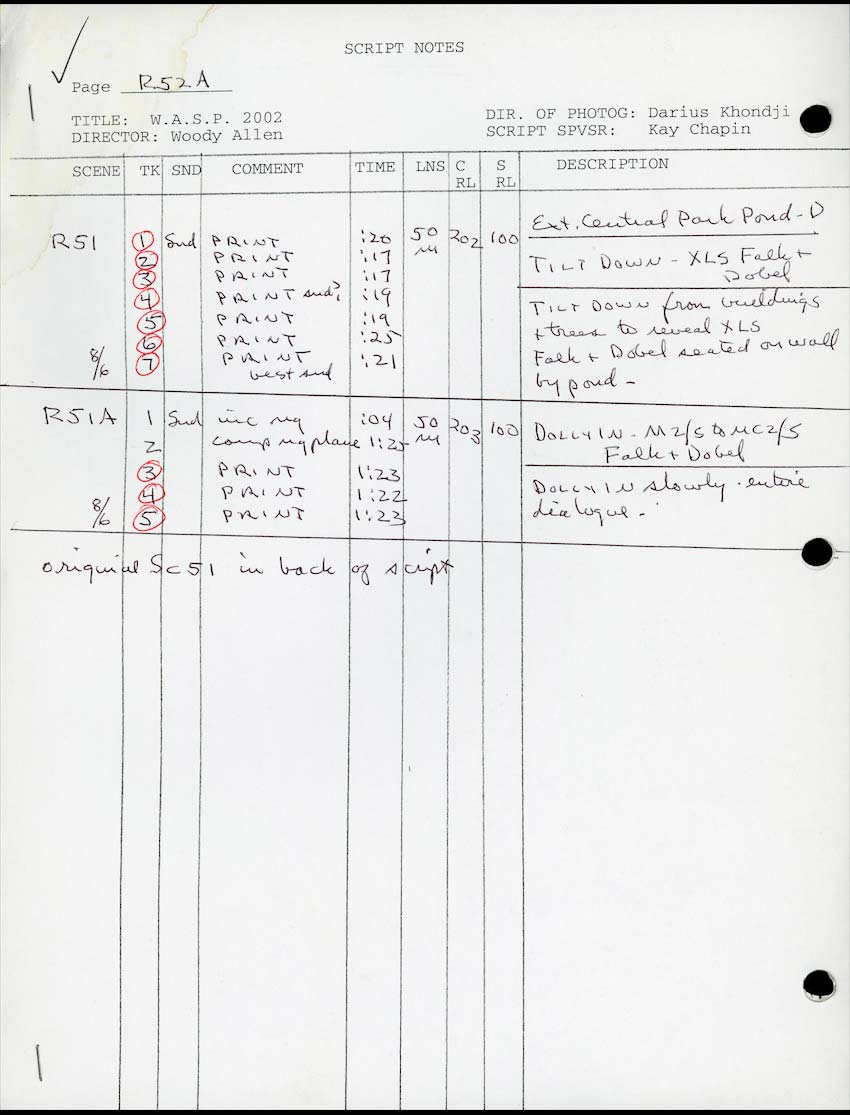 SCRIPT NOTES
Page R52A
TITLE: W.A.S.P. 2002 DIR. OF PHOTOG: Darius Khondji
DIRECTOR: Woody Allen SCRIPT SPVSR: Kay Chapin
SCENE TK SND COMMENT TIME LNS C RL S RL DESCRIPTION
Ext. Central Park Pond - D
R51 1 Snd PRINT :20 50 M 202 100
2 PRINT :17 TILT DOWN - XLS Falk +
3 PRINT :17 Dobel
4 PRINT snd? :19 TILT DOWN from buildings
5 PRINT :19 + trees to reveal XLS
6 PRINT :25 Falk + Dobel seated on wall
8/6 7 PRINT :21 by pond -
best snd
R51A 1 Snd inc ng :04 50 M 203 100 DOLLY IN - M2/S to MC2/S
2 comp ng plane 1:25 Falk + Dobel
3 PRINT 1:23
4 PRINT 1:22 DOLLY IN slowly - entire
8/6 5 PRINT 1:23 dialogue -
original Sc 51 in back of script